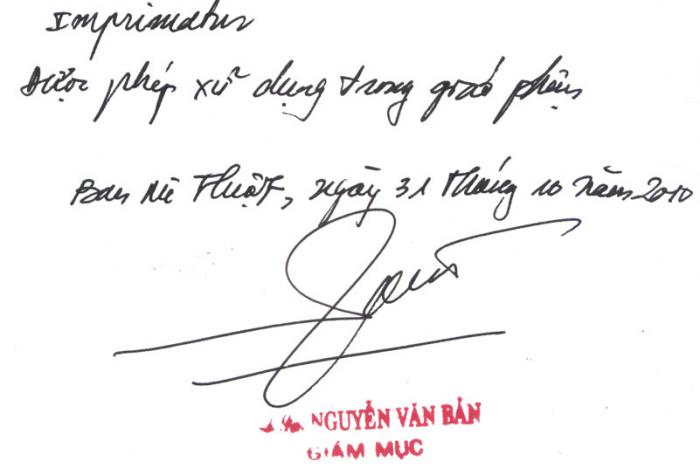 Imprimatur
Được phép xử dụng trong giáo phận
Ban Mê Thuột, ngày 31 tháng 10 năm 2010
NGUYỄN VĂN BẢN
GIÁM MỤC